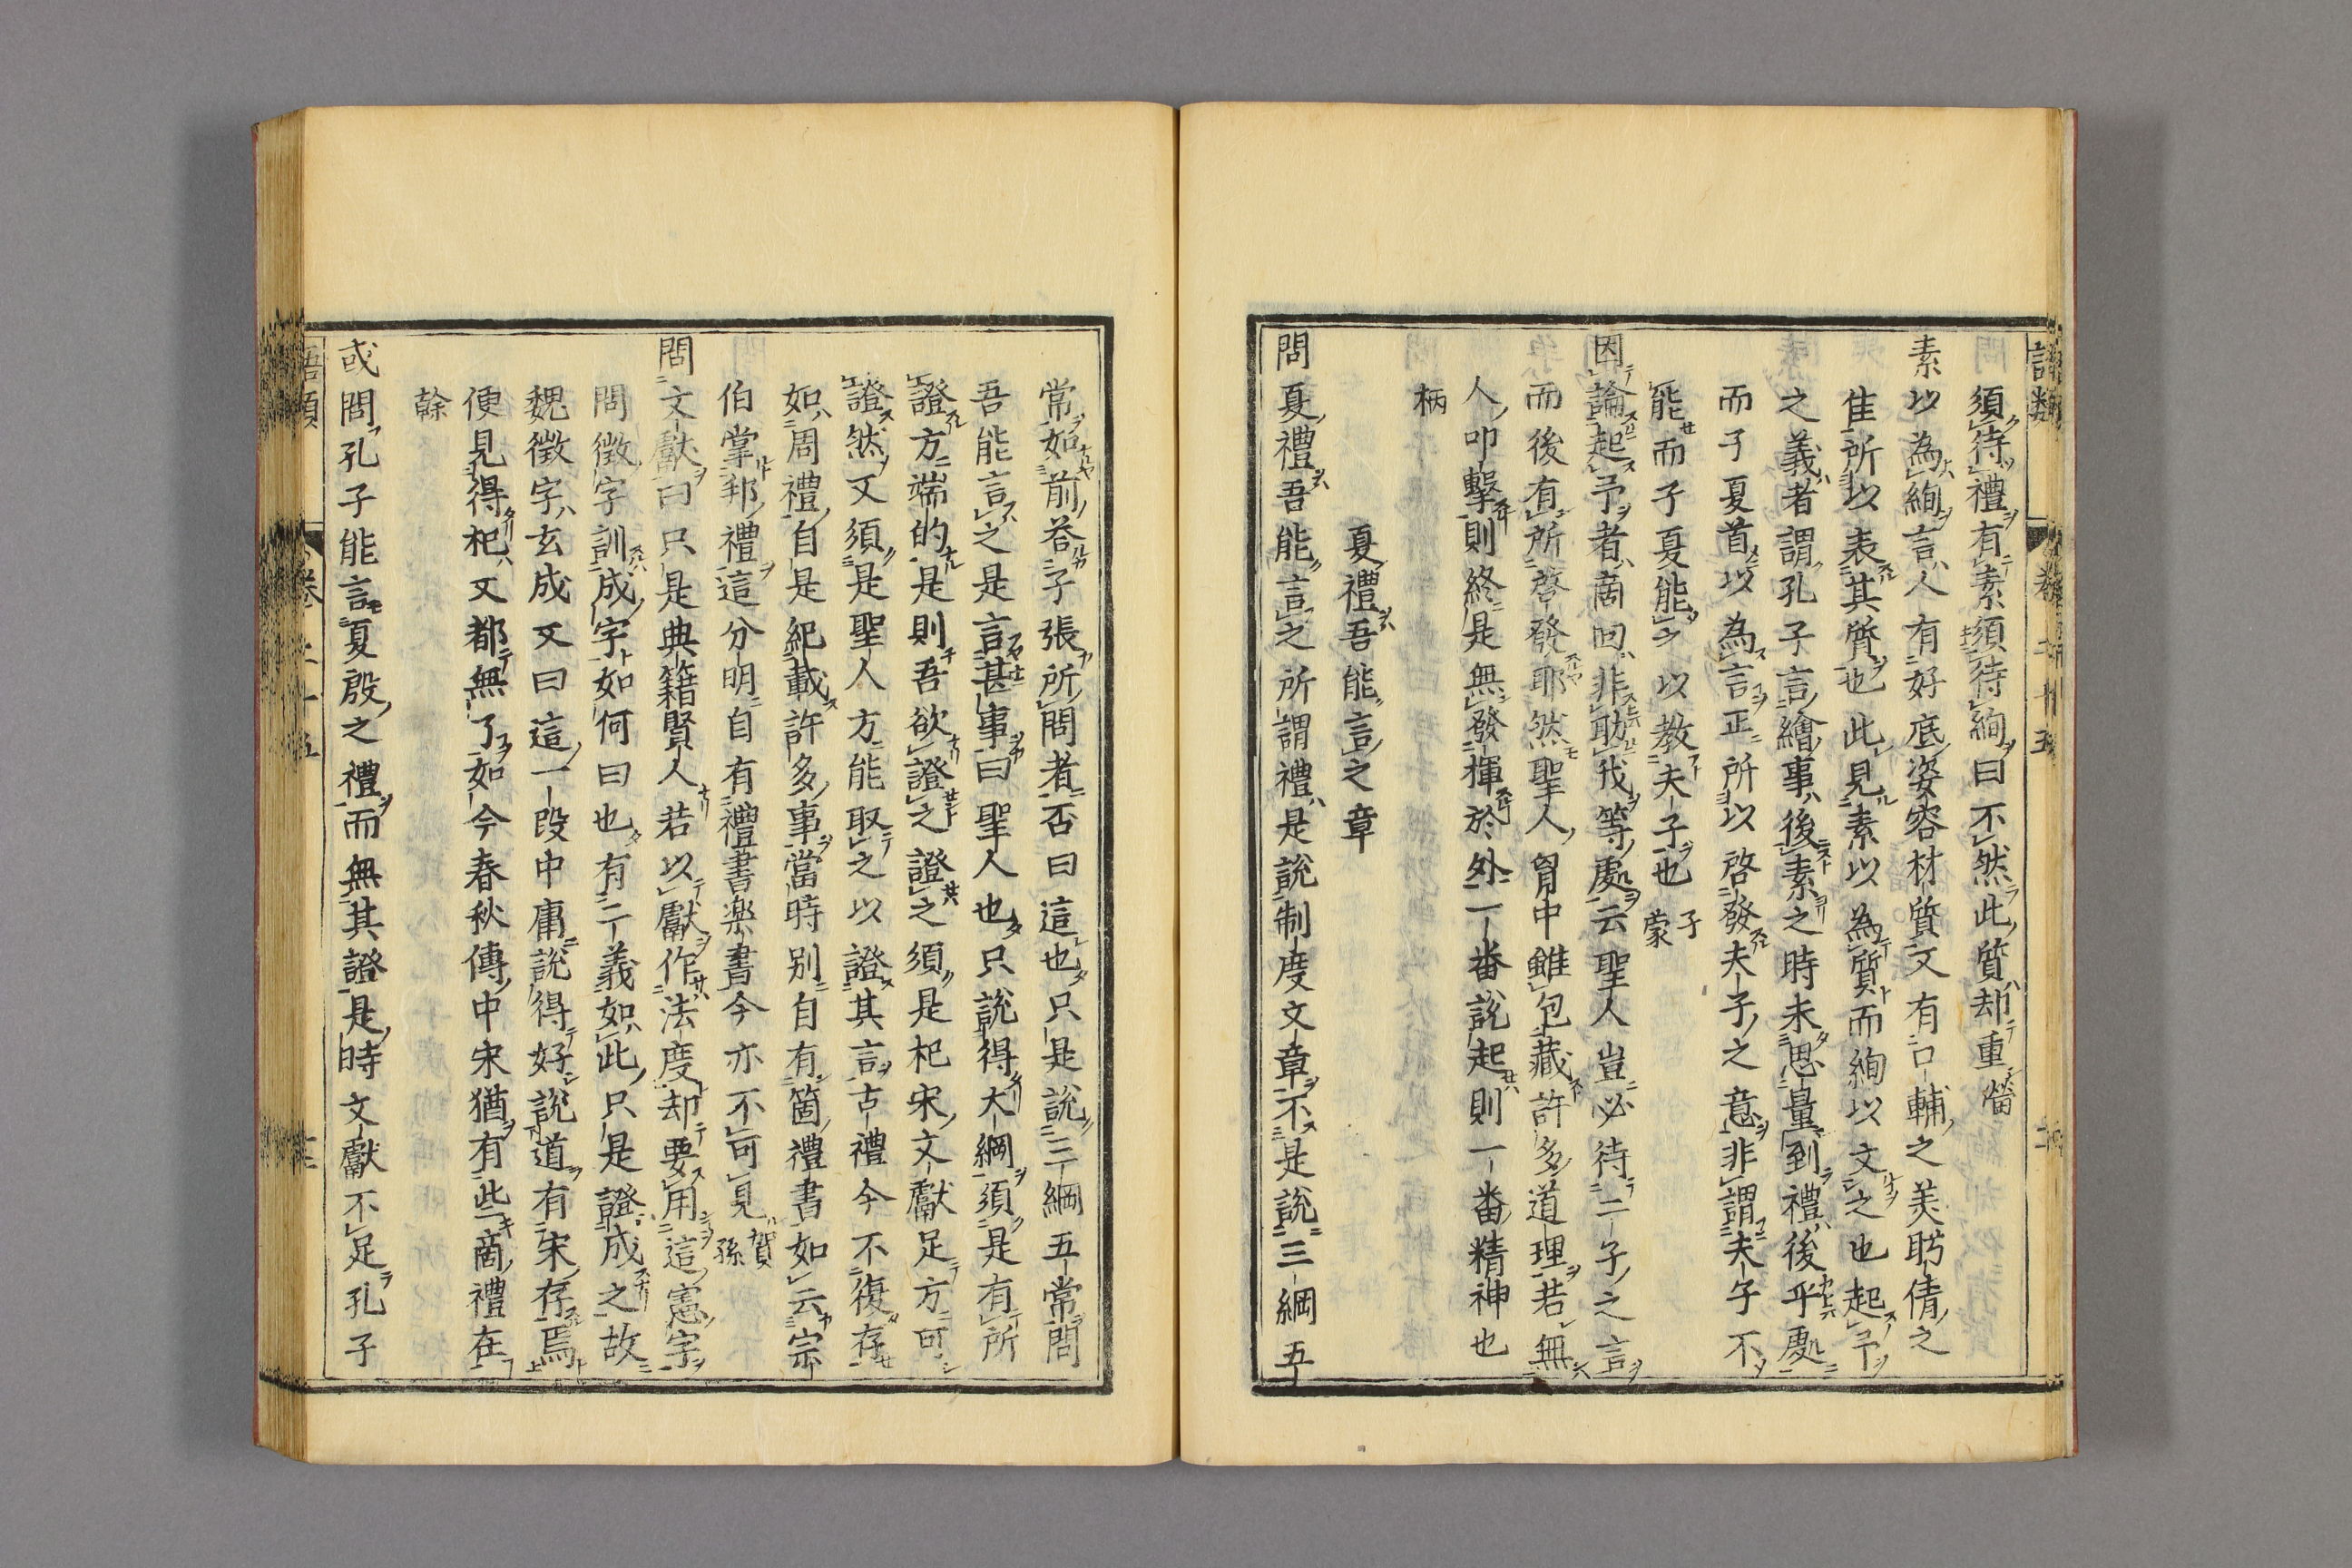 須待禮有素須待絢曰不然此質却重㽦
素以為絢言人有好底姿容材質文有口輔之美盼倩之
隹所以表其質也此見素以為質而絢以文之也起予
之義者謂孔子言繪事後素之時未思量到禮後乎處
而子夏首以為言正所以啓發夫子之意非謂夫子不
能而子夏能之以教夫子也子蒙
因論起予者啇回非助我等處云聖人豈必待二子之言
而後有所啓發耶然聖人胷中雖包藏許多道理若無
人叩擊則終是無發揮於外一番説起則一番精神也
柄
夏禮吾能言之章
問夏禮吾能言之所謂禮是說制度文章不是說三綱五
常如前荅子張所問者否曰這也只是說三綱五常問
吾能言之是言甚事曰聖人也只說得大綱須是有所
證方端的是則吾欲證之證之須是杞宋文獻足方可
證然又須是聖人方能取之以證其言古禮今不復存
如周禮自是紀載許多事當時别自有箇禮書如云宗
伯掌邦禮這分明自有禮書樂書今亦不可見賀孫
問文獻曰只是典籍賢人若以獻作法度却要用這憲字
問徵字訓成字如何曰也有二義如此只是證成之故
魏徵字玄成又曰這一段中庸說得好說道有宋存焉
便見得杞又都無了如今春秋傳中宋猶有些商禮在
榦
或問孔子能言夏殷之禮而無其證是時文獻不足孔子
語類
卷二十五
語類
卷二十五